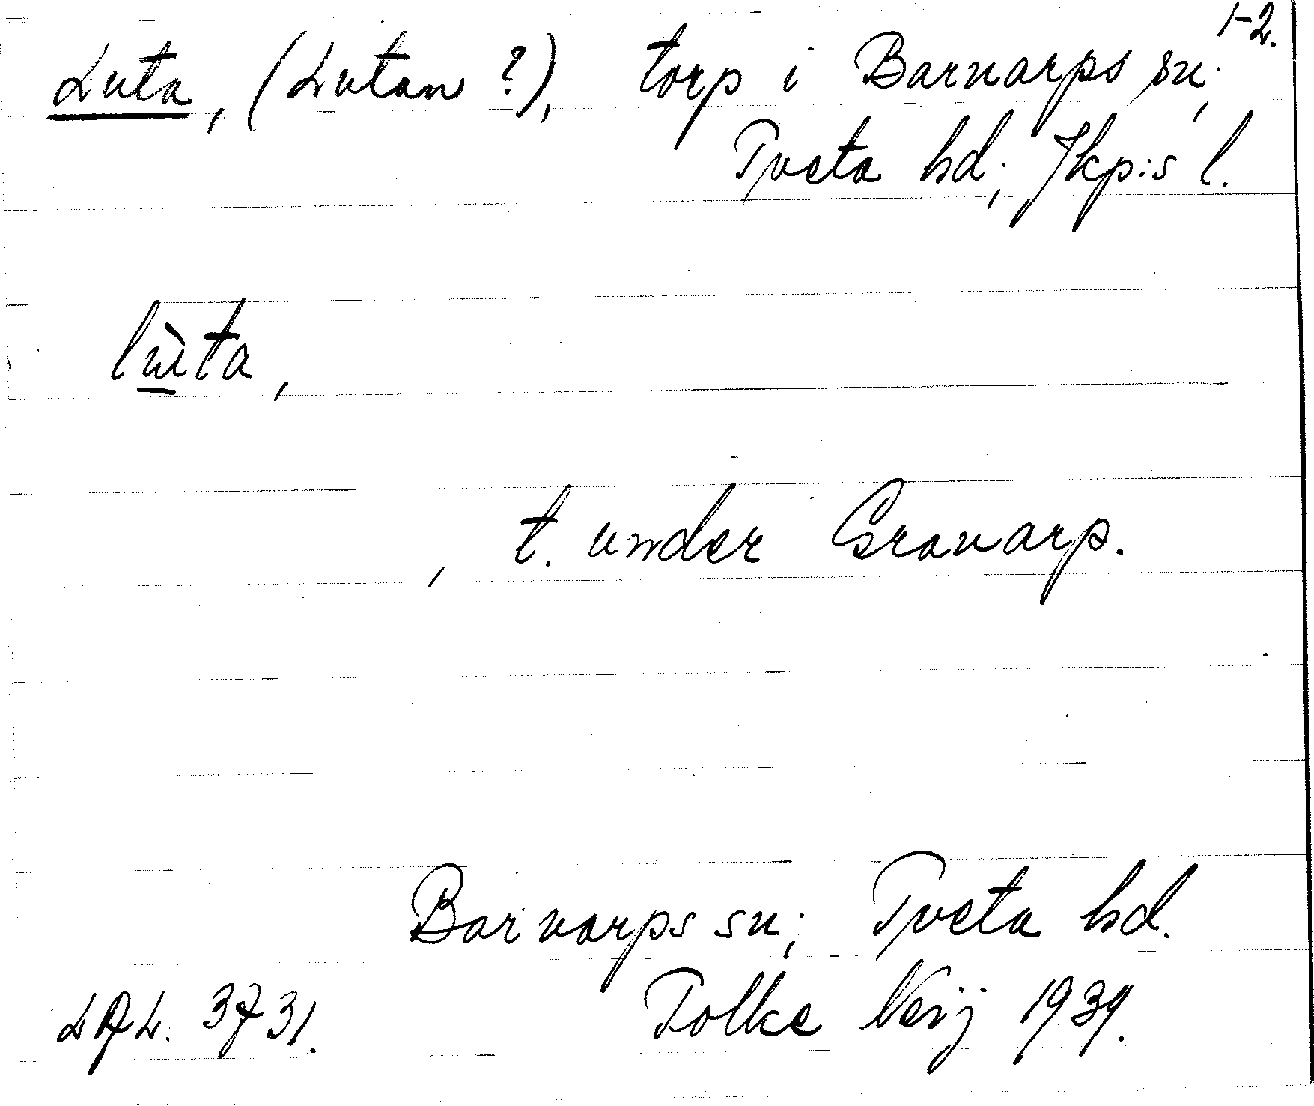 1-2.
Luta, (Lutan ?), torp i Barnarps sn;
Tveta hd; Jkp:s l.
lùta,
, t. under Granarp.
Barnarps sn; Tveta hd.
3731. Folke 1939.